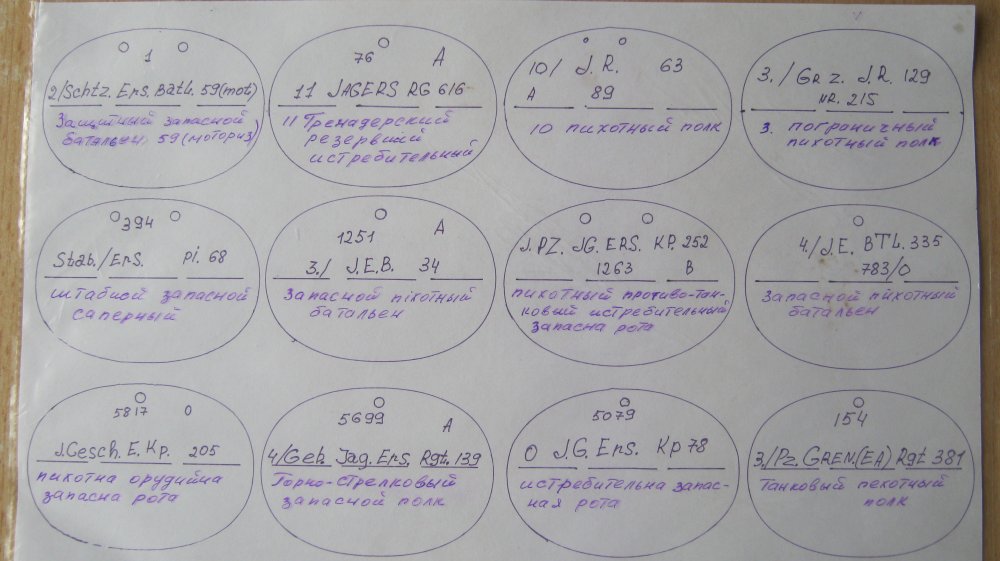 1
2/Schtz. Ers. Batl. 59(mot)
Защитный запасной
батальен 59(моториз)
76 A
11 JAGERS RG 616
11 Гренадерский
резервный
истребительный
10/ J.R. 63
A 89
10 пихотный полк
3./ GRZ. J.R. 129
NR. 215
3. пограничный
пихотный полк
394
Stab./Ers. Pi. 68
штабной запасной
саперный
1251 A
3./ J.E.B. 34
Запасной піхотный
батальен
J. PZ. JG. ERS. KP. 252
1263 B
пихотный противо-тан-
ковый истребительный
запасна рота
4./J.E. BTL. 335
783/0
Запасной пихотный
батальен
5817 0
J.Gesch. E. Kp. 205
пихотна орудийна
запасна рота
5699 A
4/Geb. Jag. Ers. Rgt. 139
Горно-стрелковый
запасной полк
5079
0 J.G. Ers. Kp 78
истребительна запас-
ная рота
154
3./Pz. GREN.(EA) Rgt 381
Танковый пехотный
полк